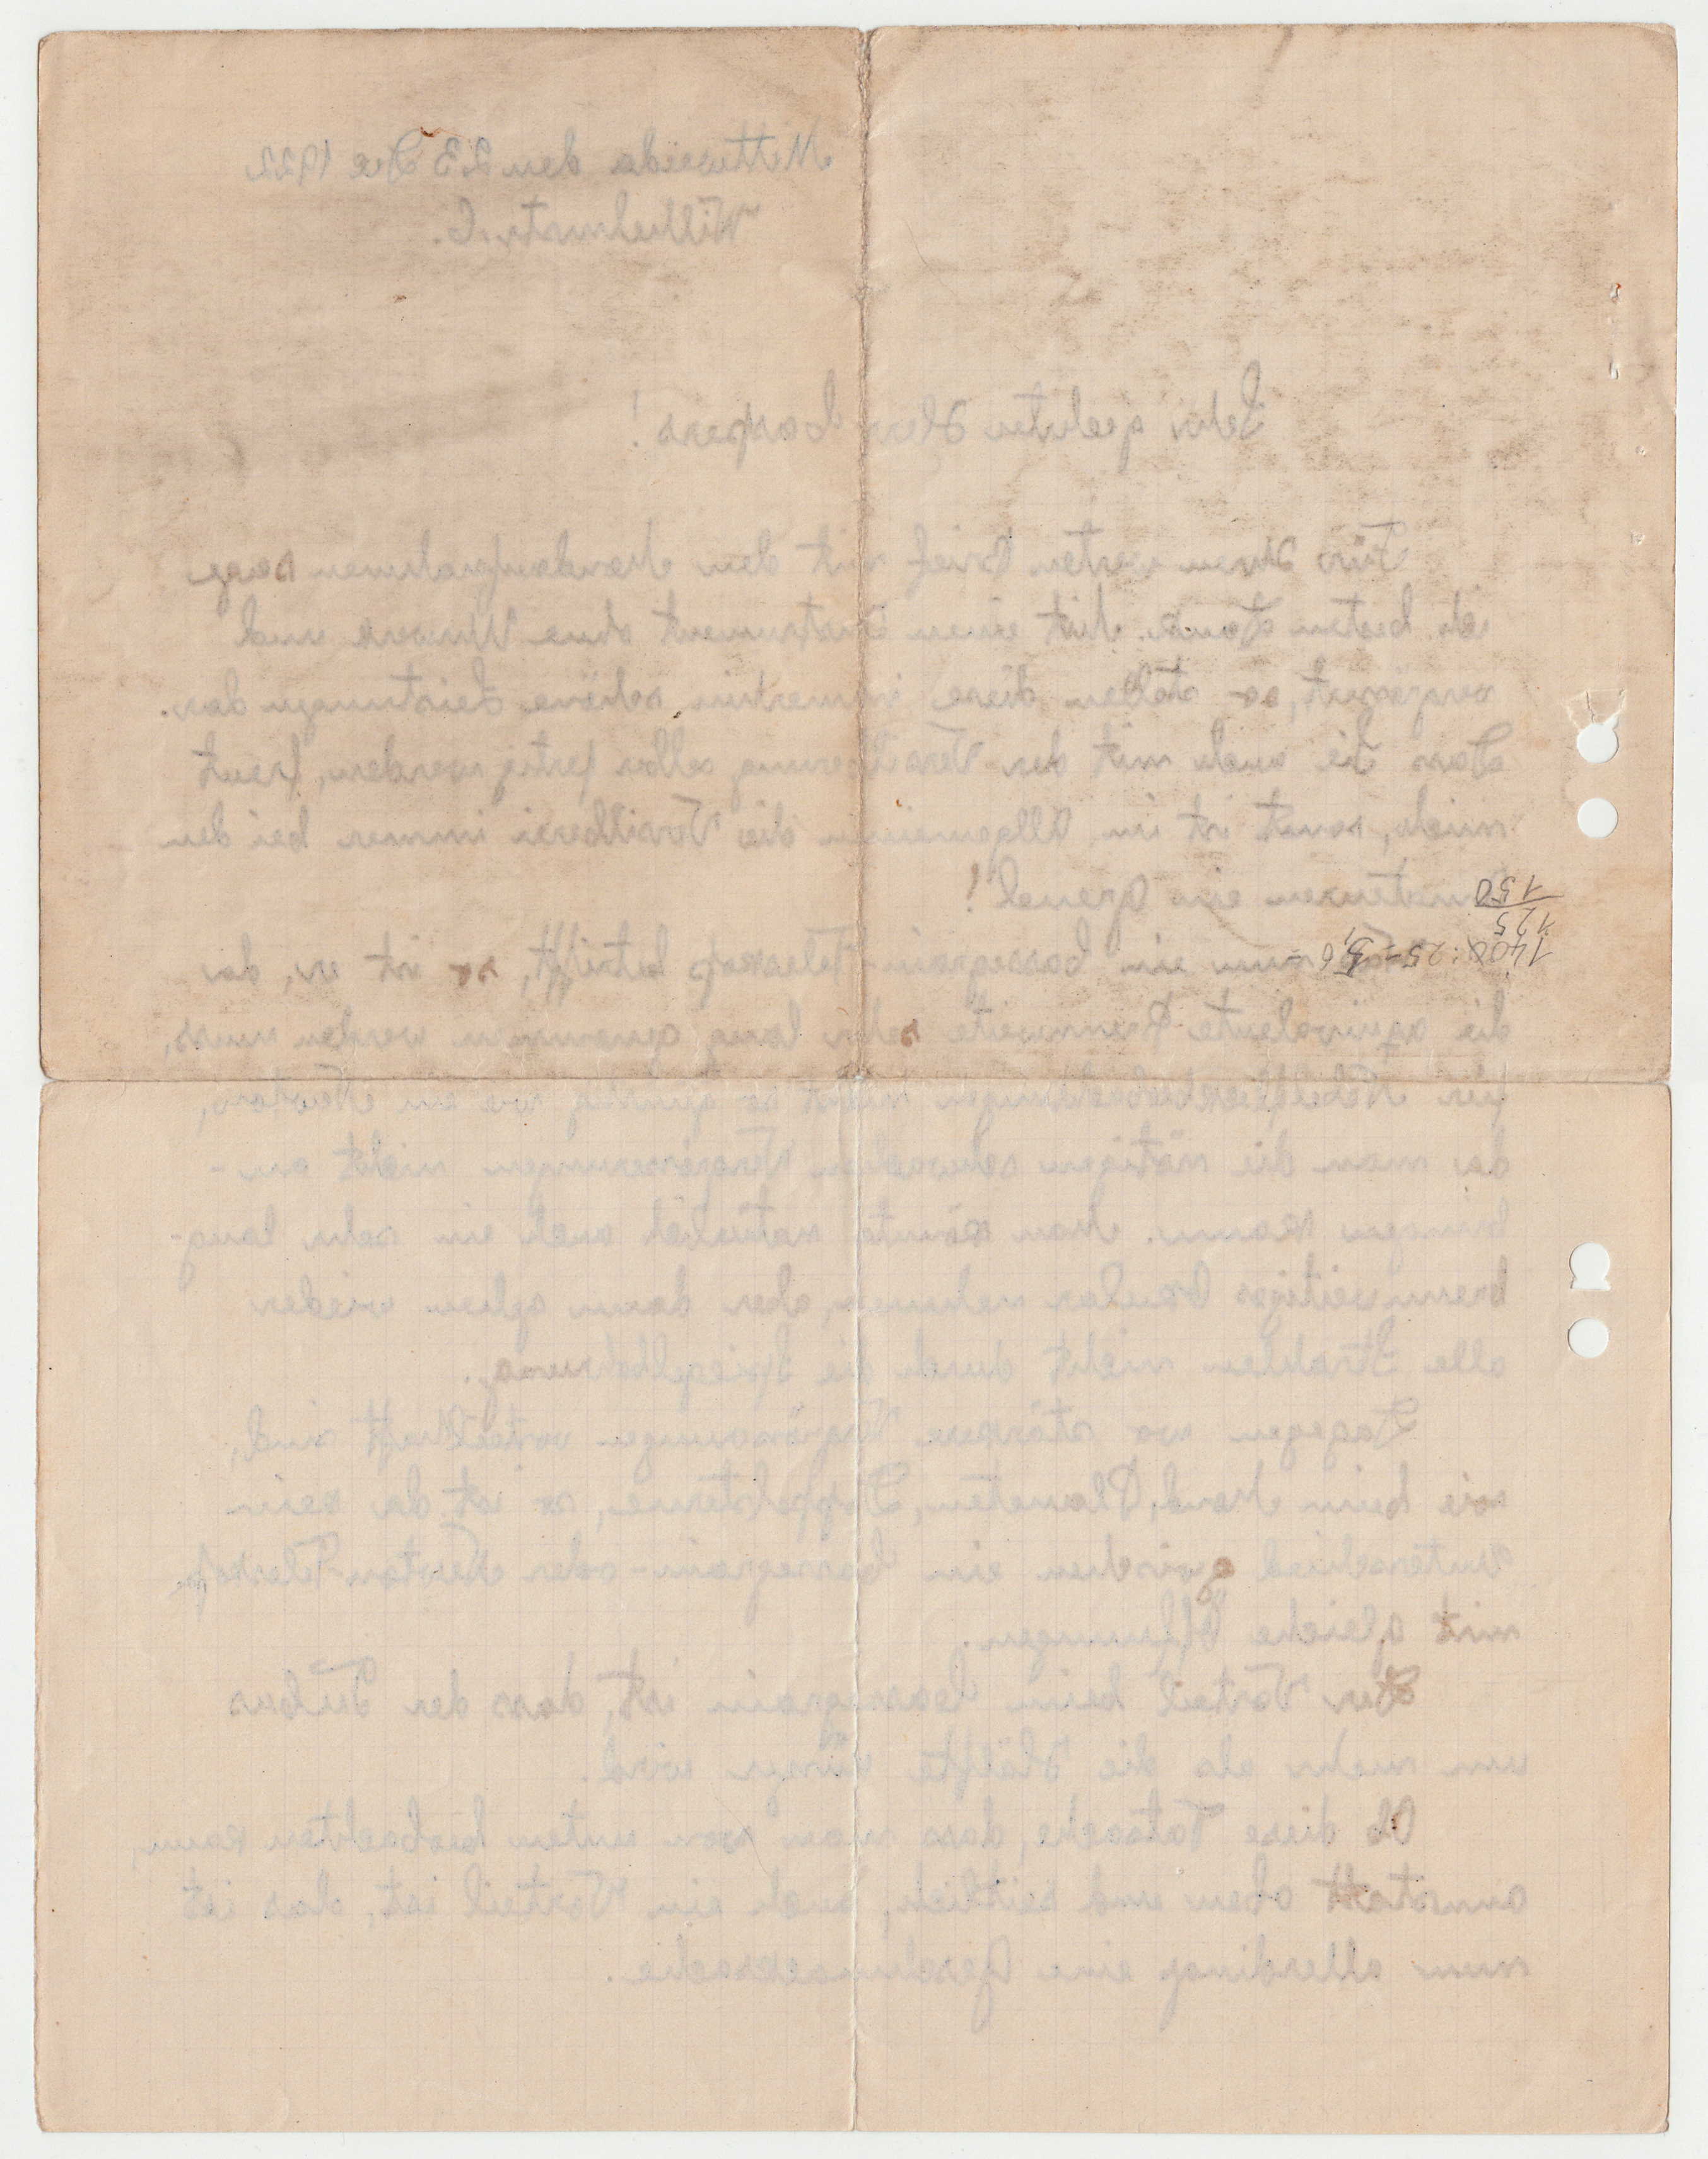 Mittweida den 23 Dec 1922
Willhelmstr. 6.
Sehr geehrten Herr Caspers!
Für Ihren werten Brief mit den Mondaufnahmen sage
ich besten Dank. Mit einem Instrument ohne Uhrwerk und
so stellen diese immerhin schöne Leistungen dar.
Dass Sie auch mit der Versilberung selber fertig werden, freut
mich, sonst ist im Allgemeinen die Versilberei immer bei den
Amateuren ein Greuel!
nun ein Cassegrain-Teleskop betrifft, so ist er, da
die äquivalente Brennweite sehr lang genommen werden muss,
für nicht so günstig wie ein Newton,
da man die nötigen schwachen Vergrösserungen nicht an-
bringen kann. Man könnte natürlich auch ein sehr lang-
brennweitiges Okular nehmen, aber dann gehen wieder
alle Strahlen nicht durch die Spiegelbohrung.
Dagegen wo stärkere Vergrösserungen vorteilhaft sind,
wie beim Mond, Planeten, Doppelsterne, so ist da kein
Unterschied zwischen ein Cassegrain- oder Newton-Teleskop
mit gleiche Öffnungen.
Der Vorteil beim Cassegrain ist, dass der Tubus
um mehr als die Hälfte kürzer wird.
Ob diese Tatsache, dass man von unten beobachten kann,
anstatt oben und seitlich, auch ein Vorteil ist, das ist
nun allerdings eine Geschmacksache.
1400 : 25 = 5,6
125
150